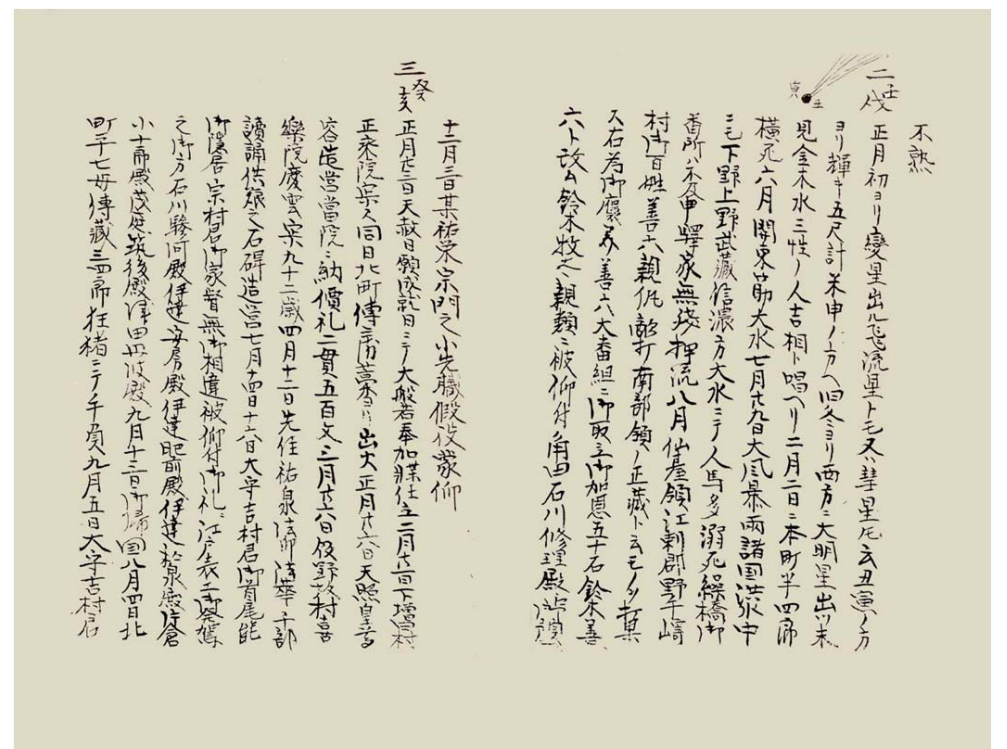 不熟
二 壬戌
寅 丑
正月初ヨリ變星出ル飛流星トモ又ハ彗星ト云丑寅ノ方
ヨリ輝キ五尺計未申ノ方ヘ旧冬ヨリ西方ニ大明星出ツ
見金木水三性ノ人吉相ト唱ヘリ二月二日ニ本町半四郎
横死六月關東筋大水七月廿九日大風暴雨諸国洪水中
ニモ下野上野武藏信濃方大水ニテ人馬多溺死繰橋御
番所ハ不及申驛家無殘押流八月仙臺領江刺郡野手崎
村御百姓善六親仇敵打南部領ノ正藏ト云モノ打果
ス右為御褒美善六大番組ニ御取立御加恩五十石鈴木善
六ト改ム鈴木牧之親類ニ被仰付角田石川修理殿
十二月三日某祐栄宗門之小先職假役蒙仰
三 癸亥
正月廿三日天赦日願成就日ニテ大般若奉加 二月廿一日下増村
正来院宗入同日北町傳 出火正月廿六日天照皇
容造當當院ニ納價札二貫五百文三月廿八日仮野牧村喜
樂院慶雲宗九十二歳四月十二日先住祐泉法印法華千部
讀誦供養之石碑造営七月十四日十六日大字吉村君御首尾能
御隠居宗村君御家督無御相違被仰付御礼ニ江戸表工御発駕
之御方石川駿河殿伊達安房殿伊達肥前殿伊達 殿片倉
小十郎殿茂庭筑後殿津田 殿九月十三日御帰国八月四日北
町平七母傳藏三四郎狂猪ニテ手負九月五日大字吉村君